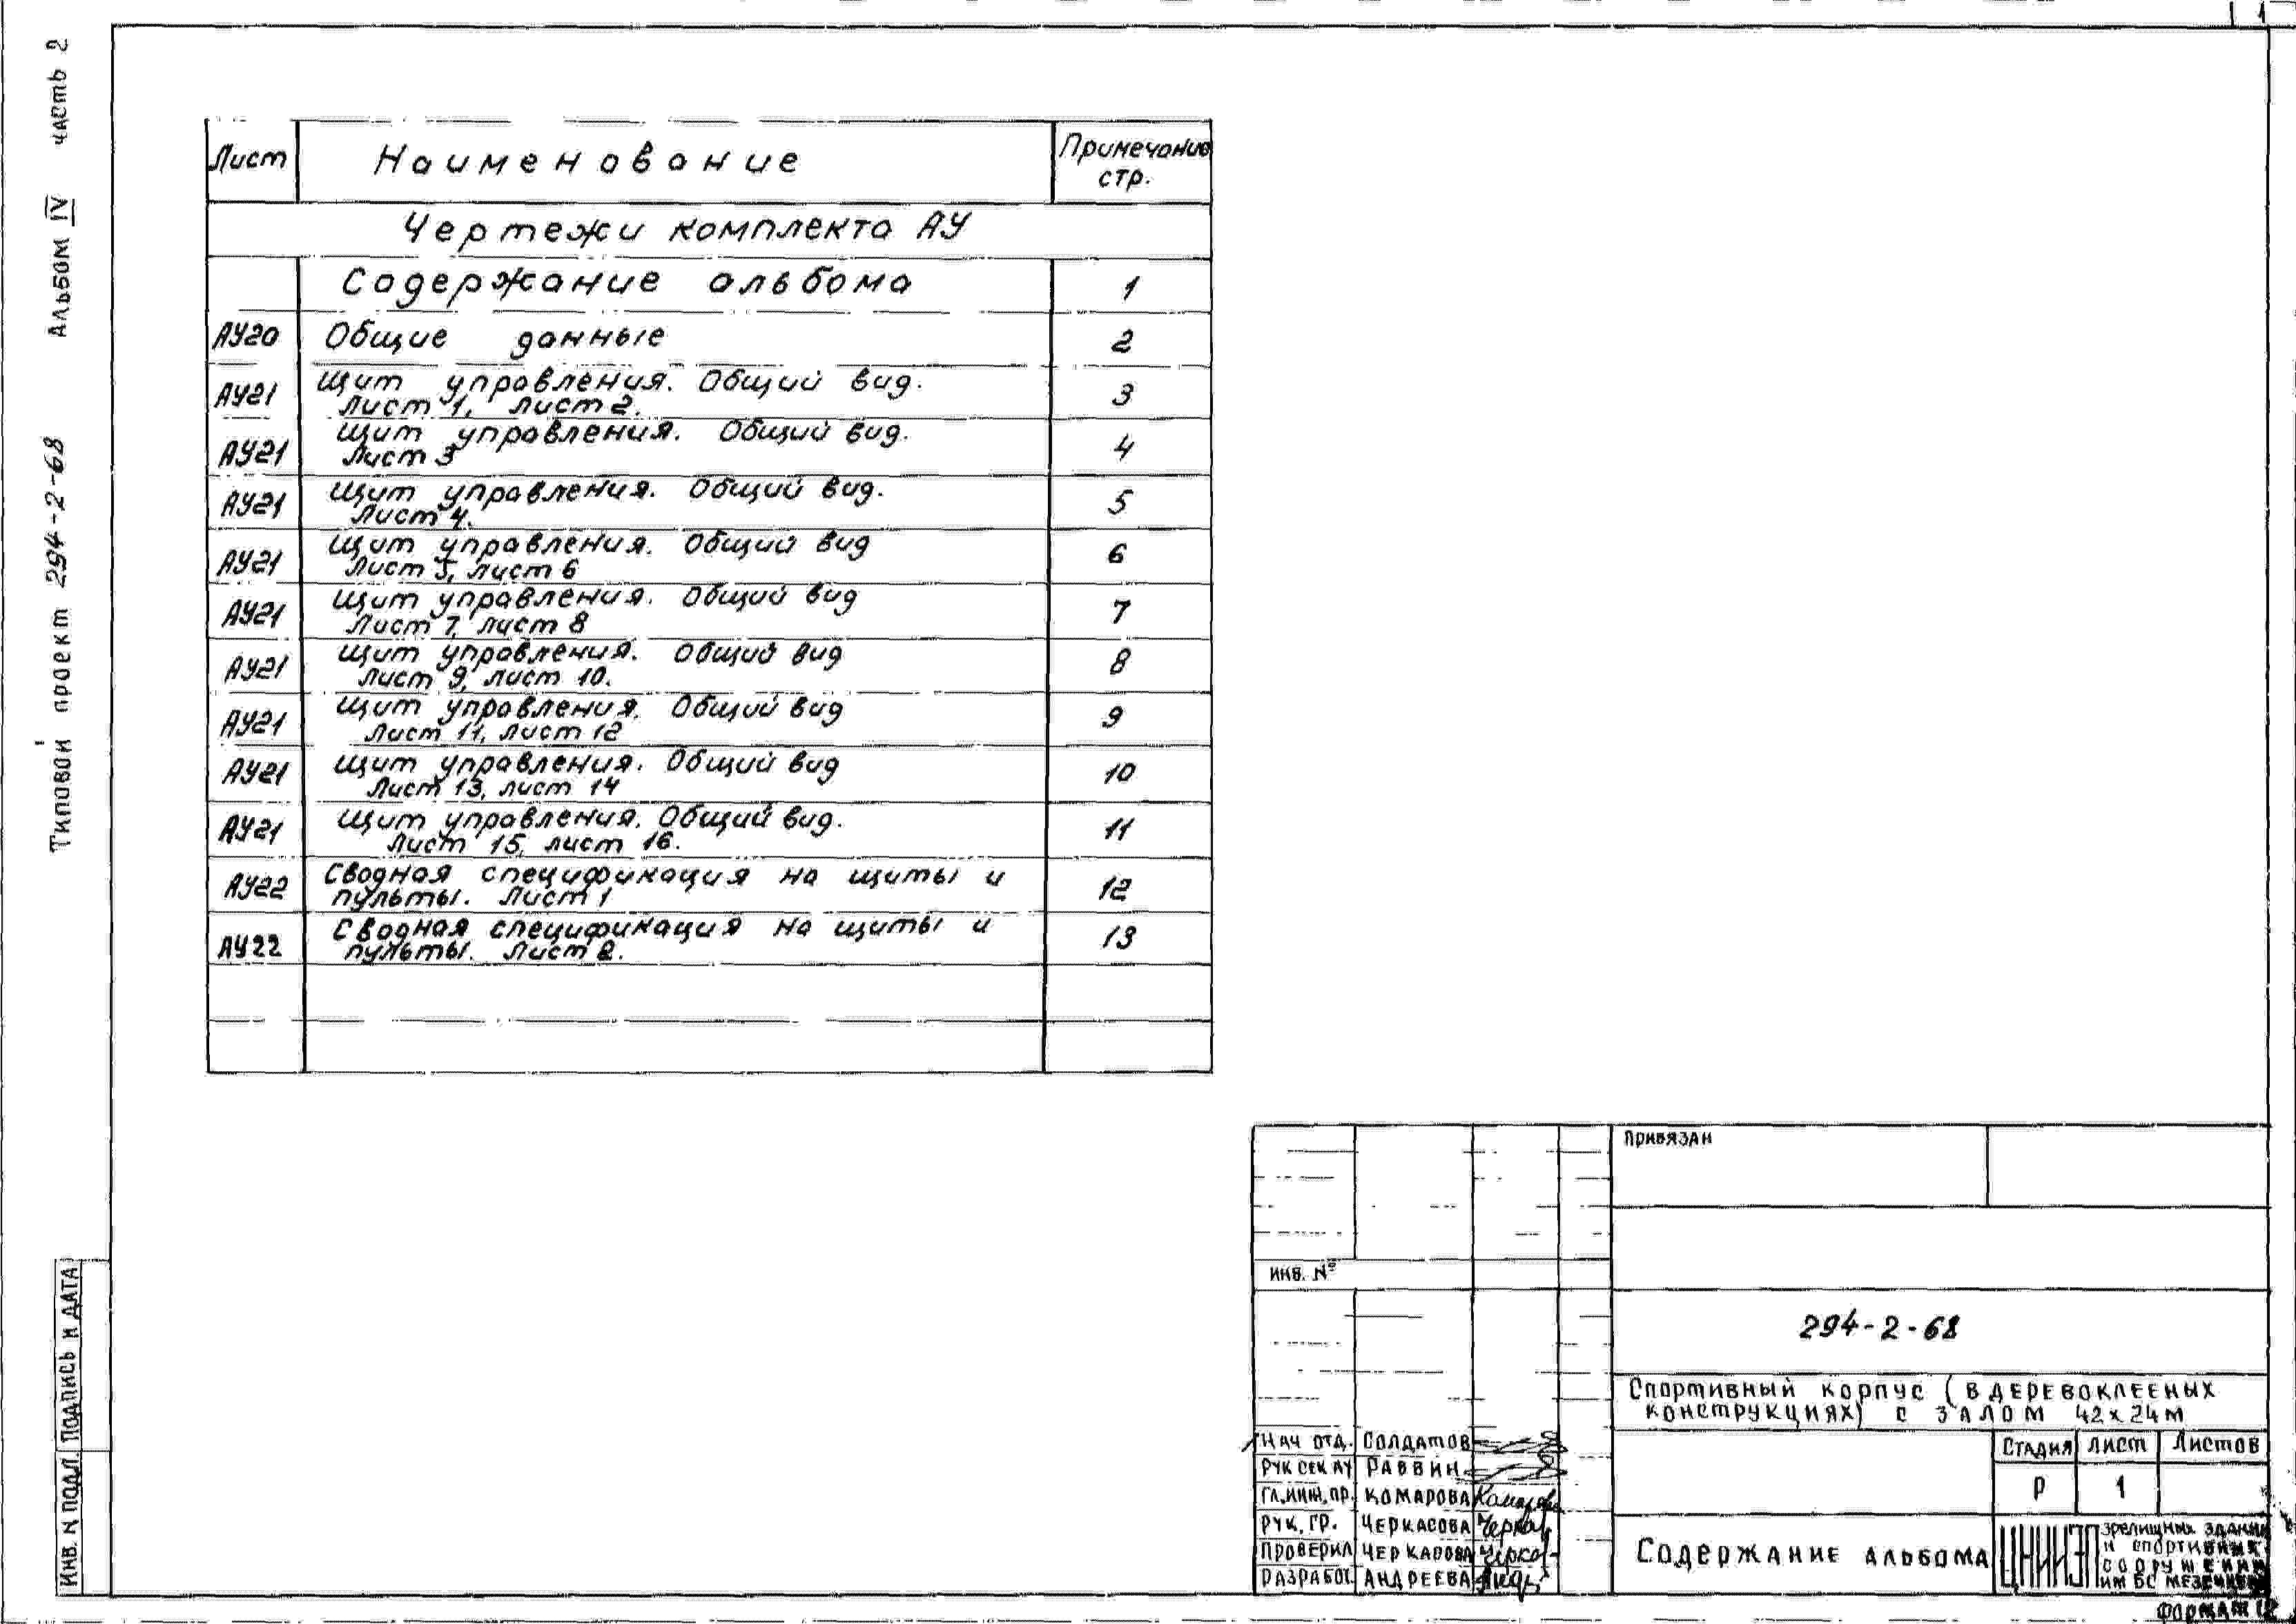 1
Типовой проект 294-2-68 Альбом IV часть 2
Лист Наименование Примечание стр.
Чертежи комплекта АУ
Содержание альбома 1
АУ20 Общие данные 2
АУ21 Щит управления. Общий вид. 3
Лист 1, лист 2.
АУ21 Щит управления. Общий вид. 4
Лист 3
АУ21 Щит управления. Общий вид. 5
Лист 4.
АУ21 Щит управления. Общий вид 6
Лист 5, лист 6
АУ21 Щит управления. Общий вид 7
Лист 7, лист 8
АУ21 Щит управления. Общий вид 8
Лист 9, лист 10.
АУ21 Щит управления. Общий вид 9
Лист 11, лист 12
АУ21 Щит управления. Общий вид 10
Лист 13, лист 14
АУ21 Щит управления. Общий вид. 11
Лист 15, лист 16.
АУ22 Сводная спецификация на щиты и 12
пульты. Лист 1
АУ22 Сводная спецификация на щиты и 13
пульты. Лист 2.
Привязан
Инв. №
294-2-68
Спортивный корпус (в деревоклееных
конструкциях) с залом 42х24м
Стадия Лист Листов
Р 1
Нач отд. Солдатов
Рук сек АУ Раввин
Гл.инж.пр. Комарова
Рук. гр. Черкасова
Проверил Черкасова
Разработ. Андреева
Содержание альбома
ЦНИИЭП
зрелищных зданий
и спортивных
сооружений
им БС Мезенцева
Формат
Инв. N подл Подпись и дата